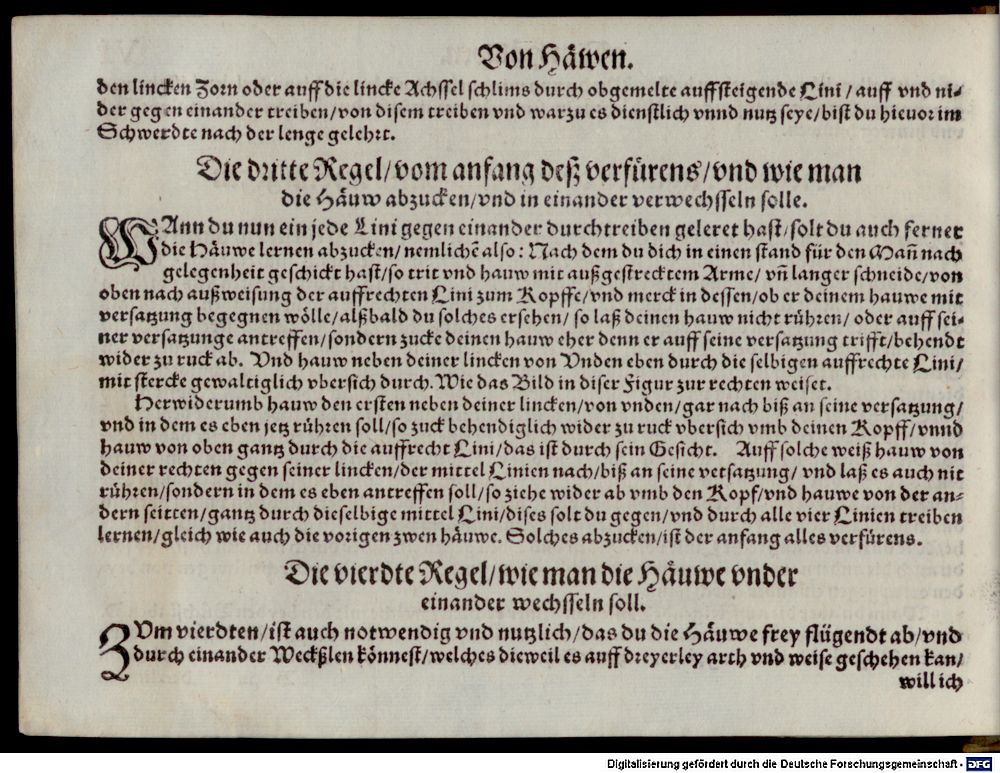 Von Häwen.
den lincken Zorn oder auff die lincke Achssel schlims durch obgemelte auffsteigende Lini / auff vnd ni-
der gegen einander treiben / von disem treiben vnd warzu es dienstlich vnnd nutz seye / bist du hieuor im
Schwerdte nach der lenge gelehrt.
Die dritte Regel / vom anfang deß verfürens / vnd wie man
die Häuw abzucken / vnd in einander verwechsseln solle.
WAnn du nun ein jede Lini gegen einander durchtreiben geleret hast / solt du auch ferner
die Häuwe lernen abzucken / nemlichē also: Nach dem du dich in einen stand für den Mañ nach
gelegenheit geschickt hast / so trit vnd hauw mit außgestrecktem Arme / vñ langer schneide / von
oben nach außweisung der auffrechten Lini zum Kopffe / vnd merck in dessen / ob er deinem hauwe mit
versatzung begegnen wölle / alßbald du solches ersehen / so laß deinen hauw nicht rühren / oder auff sei-
ner versatzunge antreffen / sondern zucke deinen hauw eher denn er auff seine versatzung trifft / behendt
wider zu ruck ab. Vnd hauw neben deiner lincken von Vnden eben durch die selbigen auffrechte Lini /
mit stercke gewaltiglich vbersich durch. Wie das Bild in diser Figur zur rechten weiset.
Herwiderumb hauw den ersten neben deiner lincken / von vnden / gar nach biß an seine versatzung /
vnd in dem es eben jetz rühren soll / so zuck behendiglich wider zu ruck vbersich vmb deinen Kopff / vnnd
hauw von oben gantz durch die auffrecht Lini / das ist durch sein Gesicht. Auff solche weiß hauw von
deiner rechten gegen seiner lincken / der mittel Linien nach / biß an seine versatzung / vnd laß es auch nit
rühren / sondern in dem es eben antreffen soll / so ziehe wider ab vmb den Kopf / vnd hauwe von der an-
dern seitten / gantz durch dieselbige mittel Lini / dises solt du gegen / vnd durch alle vier Linien treiben
lernen / gleich wie auch die vorigen zwen häuwe. Solches abzucken / ist der anfang alles verfürens.
Die vierdte Regel / wie man die Häuwe vnder
einander wechsseln soll.
ZVm vierdten / ist auch notwendig vnd nutzlich / das du die Häuwe frey flügendt ab / vnd
durch einander Weckßlen könnest / welches dieweil es auff dreyerley arth vnd weise geschehen kan /
will ich
Digitalisierung gefördert durch die Deutsche Forschungsgemeinschaft - DFG